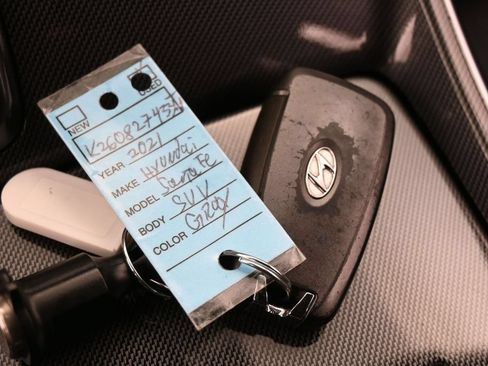 NEW
USED
K260827437
YEAR 2021
MAKE Hyundai
MODEL SantaFe
BODY SUV
COLOR Gray